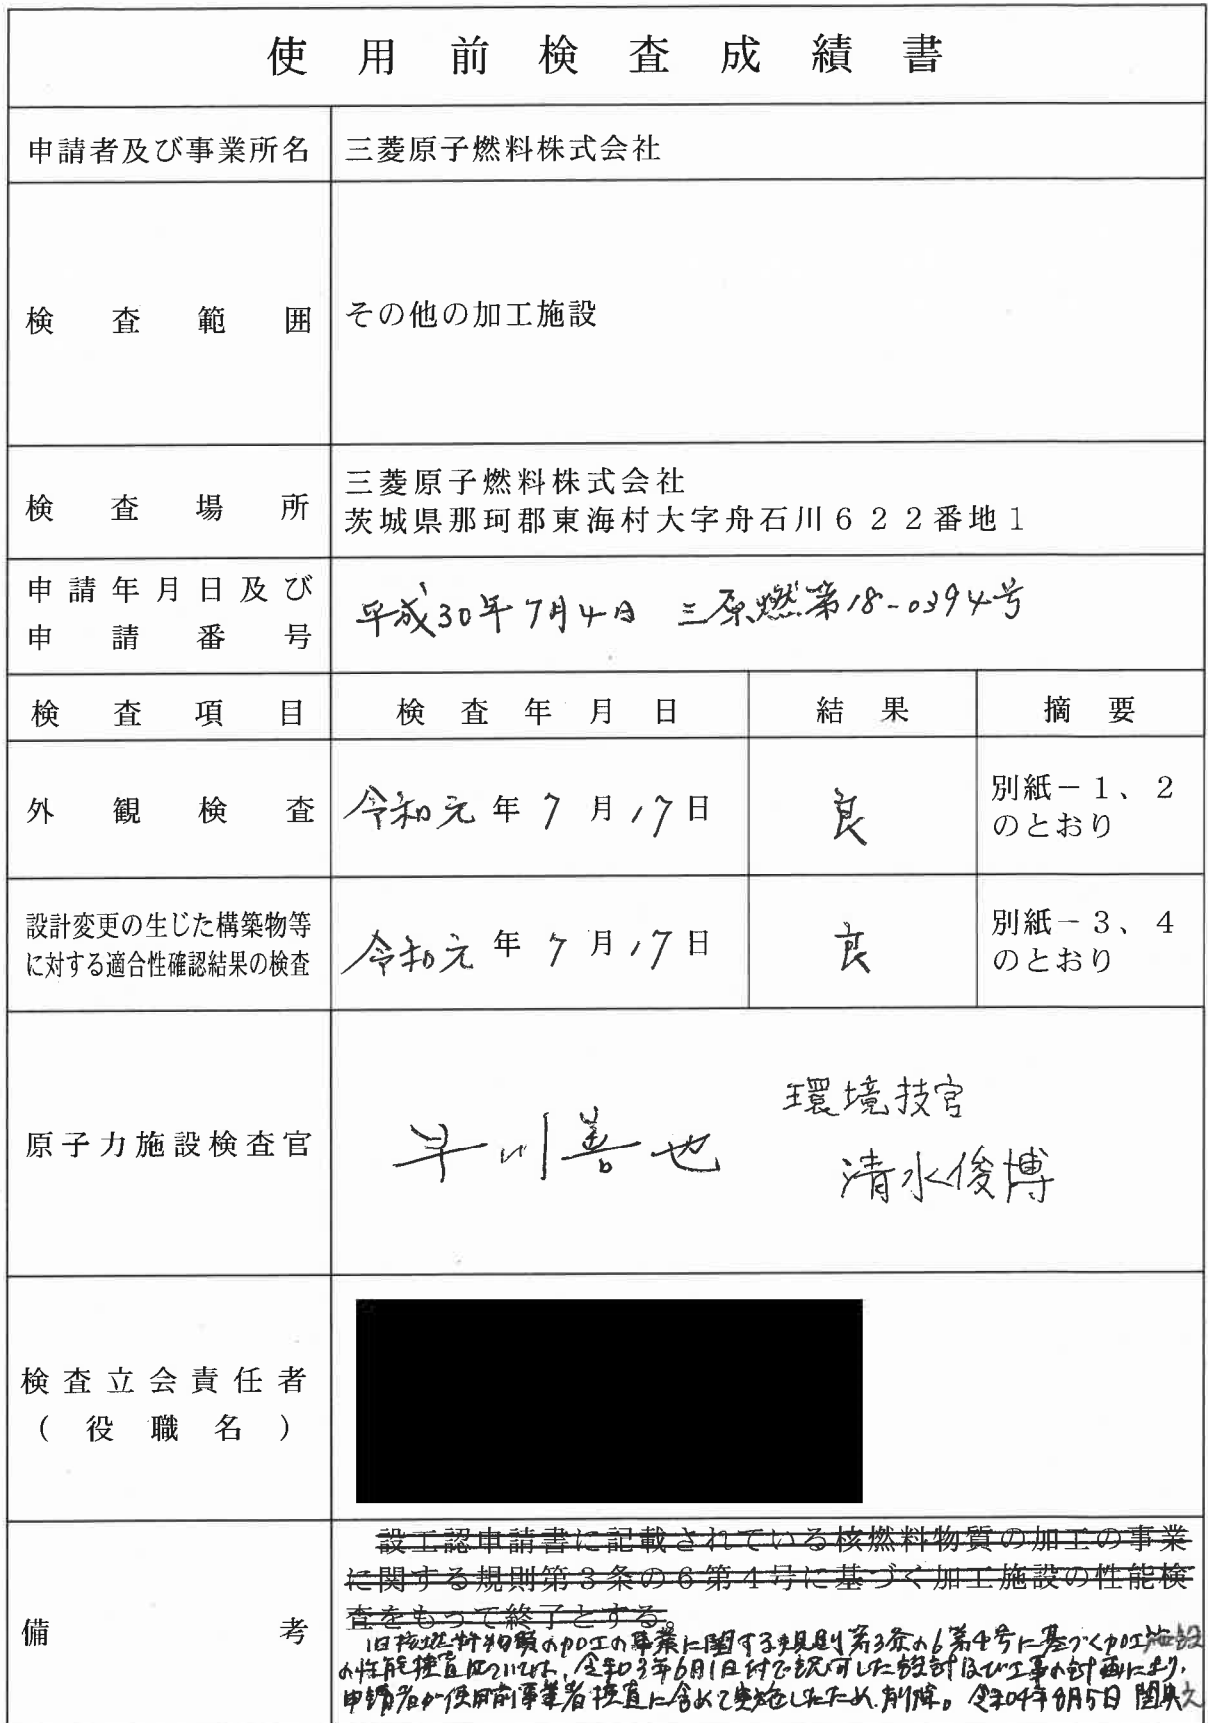 使用前検査成績書
申請者及び事業所名 三菱原子燃料株式会社
検査範囲 その他の加工施設
検査場所 三菱原子燃料株式会社
茨城県那珂郡東海村大字舟石川622番地1
申請年月日及び
申請番号 平成30年7月4日 三原燃第18-0394号
検査項目 検査年月日 結果 摘要
外観検査 令和元年7月17日 良 別紙-1、2
のとおり
設計変更の生じた構築物等
に対する適合性確認結果の検査 令和元年7月17日 良 別紙-3、4
のとおり
原子力施設検査官 早川善也 環境技官
清水俊博
検査立会責任者
(役職名)
備考 設工認申請書に記載されている核燃料物質の加工の事業
に関する規則第3条の6第4号に基づく加工施設の性能検
査をもって終了とする。
旧核燃料物質の加工の事業に関する規則第3条の6第4号に基づく加工施設
の性能検査については、令和3年6月1日付で認可した設計及び工事の計画により、
申請者が使用前事業者検査に含めて実施したため、削除。 令和04年8月5日